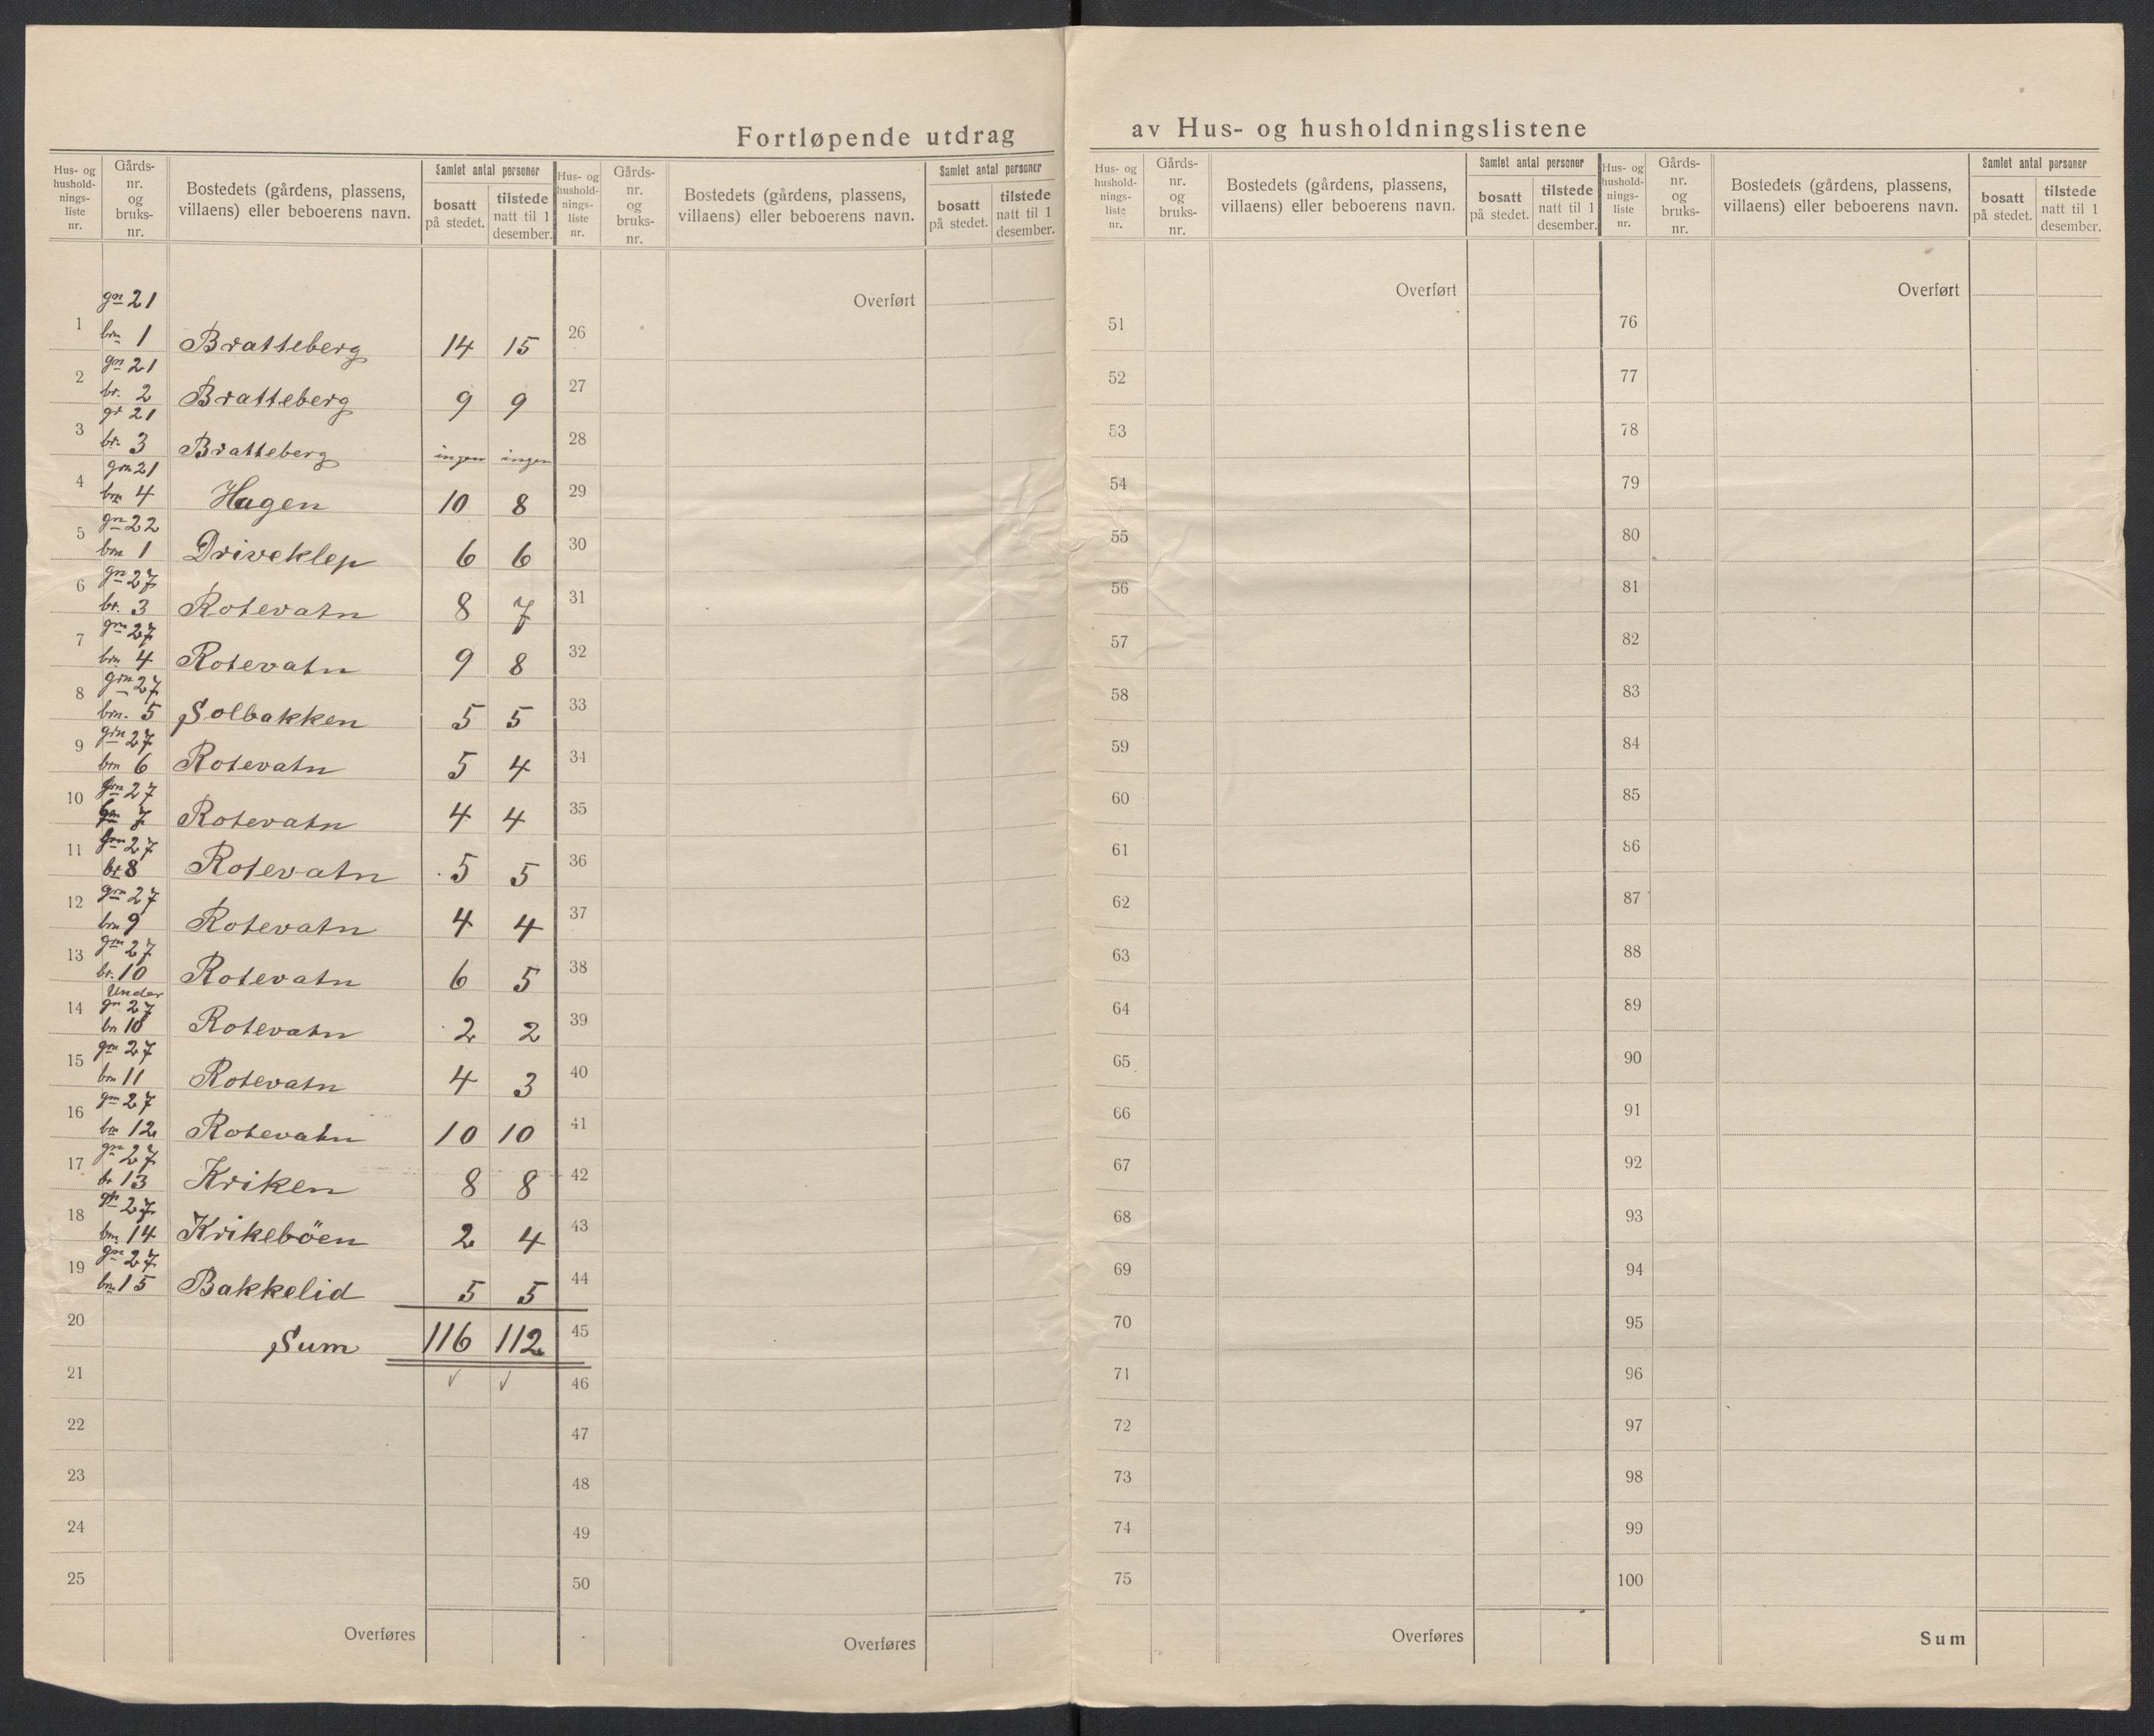 Fortløpende utdrag av Hus- og husholdningslistene
Hus- og hushold-nings-liste nr. | Gårds-nr. og bruks-nr. | Bostedets (gårdens, plassens, villaens) eller beboerens navn. | Samlet antal personer | bosatt på stedet. | tilstede natt til 1 desember.
Hus- og hushold-nings-liste nr. | Gårds-nr. og bruks-nr. | Bostedets (gårdens, plassens, villaens) eller beboerens navn. | Samlet antal personer | bosatt på stedet. | tilstede natt til 1 desember.
Hus- og hushold-nings-liste nr. | Gårds-nr. og bruks-nr. | Bostedets (gårdens, plassens, villaens) eller beboerens navn. | Samlet antal personer | bosatt på stedet. | tilstede natt til 1 desember.
Hus- og hushold-nings-liste nr. | Gårds-nr. og bruks-nr. | Bostedets (gårdens, plassens, villaens) eller beboerens navn. | Samlet antal personer | bosatt på stedet. | tilstede natt til 1 desember.
1 gn 21 brn 1 Bratteberg 14 15
2 gn 21 br. 2 Bratteberg 9 9
3 gr 21 br. 3 Bratteberg ingen ingen
4 grn 21 brn 4 Hagen 10 8
5 gn 22 brn 1 Driveklep 6 6
6 gn 27 br. 3 Rotevatn 8 7
7 grn 27 brn 4 Rotevatn 9 8
8 grn 27 brn. 5 Solbakken 5 5
9 grn 27 brn 6 Rotevatn 5 4
10 grn 27 brn 7 Rotevatn 4 4
11 grn 27 br 8 Rotevatn 5 5
12 grn 27 brn 9 Rotevatn 4 4
13 grn 27 br. 10 Rotevatn 6 5
14 Under gn 27 bn 10 Rotevatn 2 2
15 grn 27 brn 11 Rotevatn 4 3
16 grn 27 bn 12 Rotevatn 10 10
17 gn 27 br 13 Kriken 8 8
18 gn 27 brn 14 Krikeböen 2 4
19 gn 27 bn 15 Bakkelid 5 5
20 Sum 116 112
21
22
23
24
25
Overføres
Overført
26
27
28
29
30
31
32
33
34
35
36
37
38
39
40
41
42
43
44
45
46
47
48
49
50
Overføres
Overført
51
52
53
54
55
56
57
58
59
60
61
62
63
64
65
66
67
68
69
70
71
72
73
74
75
Overføres
Overført
76
77
78
79
80
81
82
83
84
85
86
87
88
89
90
91
92
93
94
95
96
97
98
99
100
Sum